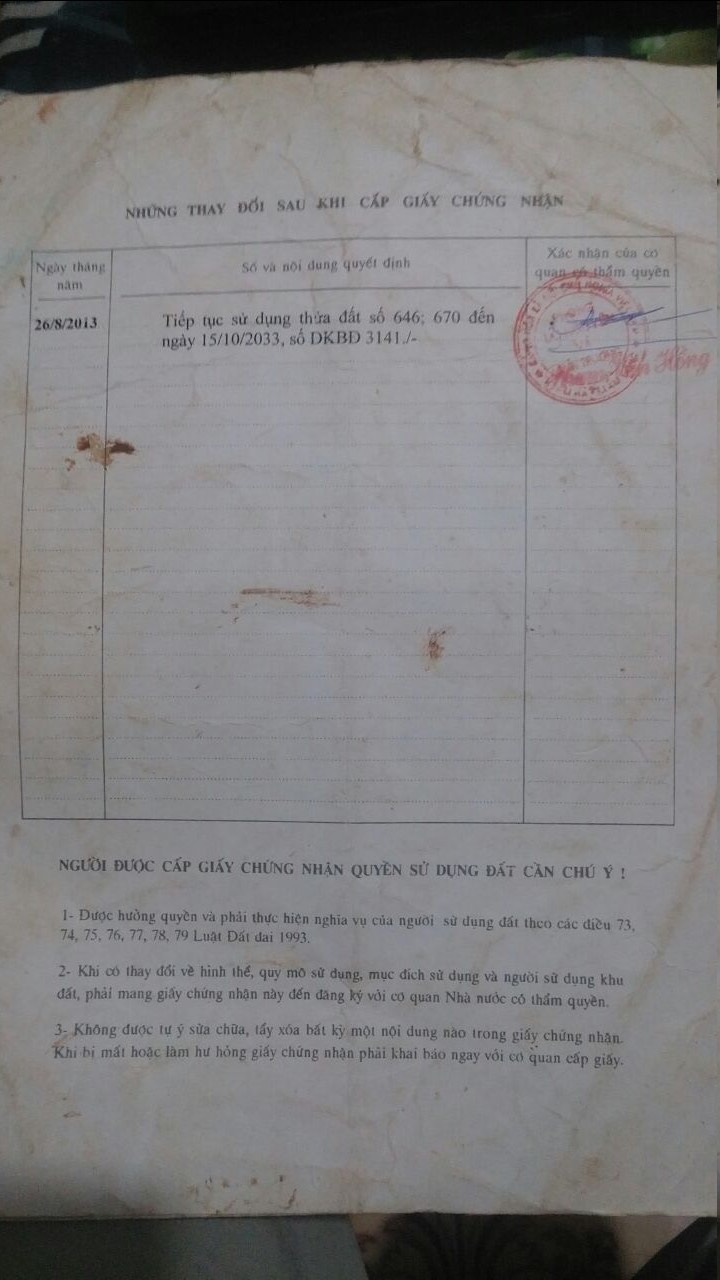 NHỮNG THAY ĐỔI SAU KHI CẤP GIẤY CHỨNG NHẬN
Ngày tháng năm
Số và nội dung quyết định
Xác nhận của cơ quan có thẩm quyền
26/8/2013
Tiếp tục sử dụng thửa đất số 646; 670 đến
ngày 15/10/2033, số DKBD 3141./-
Hồng
NGƯỜI ĐƯỢC CẤP GIẤY CHỨNG NHẬN QUYỀN SỬ DỤNG ĐẤT CẦN CHÚ Ý !
1- Được hưởng quyền và phải thực hiện nghĩa vụ của người sử dung đất theo các điều 73,
74, 75, 76, 77, 78, 79 Luật Đất dai 1993.
2- Khi có thay đổi về hình thể, quy mô sử dụng, mục đích sử dụng và người sử dụng khu
đất, phải mang giấy chứng nhận này đến đăng ký với cơ quan Nhà nước có thẩm quyền.
3- Không được tự ý sửa chữa, tẩy xóa bất kỳ một nội dung nào trong giấy chứng nhận.
Khi bị mất hoặc làm hư hỏng giấy chứng nhận phải khai báo ngay với cơ quan cấp giấy.